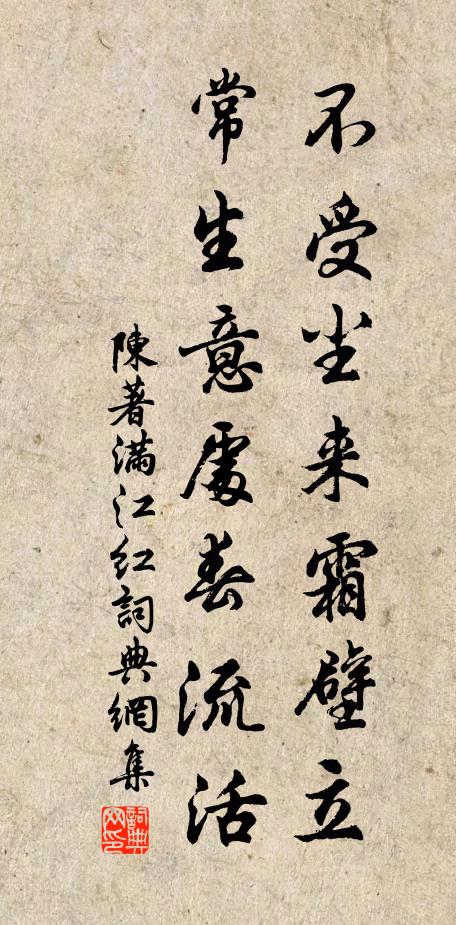 不受尘来霜壁立
常生意處春流活
陳著滿江红詞典網集
詞典网印